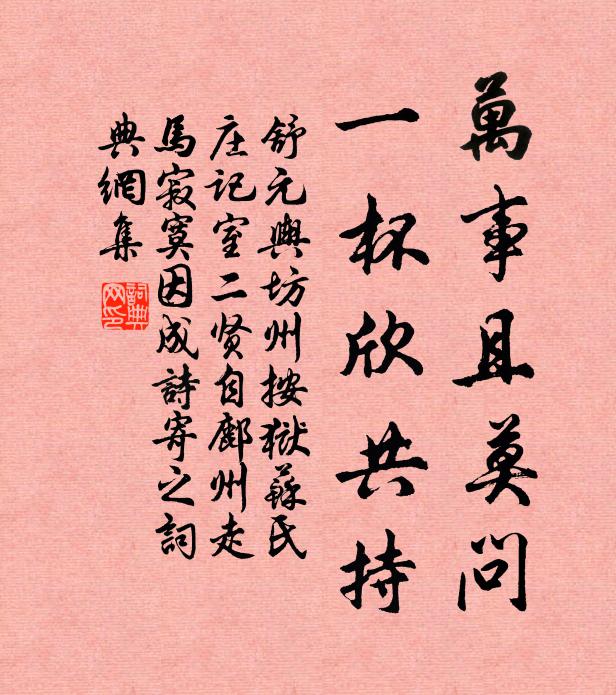 萬事且莫問
一杯欣共持
舒元輿坊州按獄蘇氏
庄记室二贤自鄜州走
馬寂寞因成詩寄之詞
典網集
詞典网印